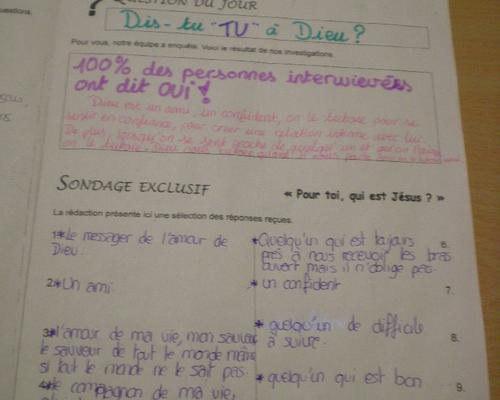 uestions.
? QUESTION DU JOUR
Dis-tu "TU" à Dieu ?
Pour vous, notre équipe a enquêté. Voici le résultat de nos investigations.
100% des personnes interwievées
ont dit OUI !
Dieu est un ami, un confident, on le tutoie pour se
sentir en confiance, pour créer une relation intime avec lui.
De plus, lorsqu'on se sent proche de quelqu'un et qu'on l'aime
on le tutoie.
SONDAGE EXCLUSIF
« Pour toi, qui est Jésus ? »
La rédaction présente ici une sélection des réponses reçues.
1* Le messager de l'amour de
Dieu.
2* Un ami.
3* l'amour de ma vie, mon sauveur
le sauveur de tout le monde même
si tout le monde ne le sait pas.
4* le compagnon de ma vie,
* Quelqu'un qui est toujours 6.
près à nous recevoir les bras
ouvert mais il n'oblige pas.
* un confident 7.
* quelqu'un de difficile 8.
à suivre.
* quelqu'un qui est bon 9.